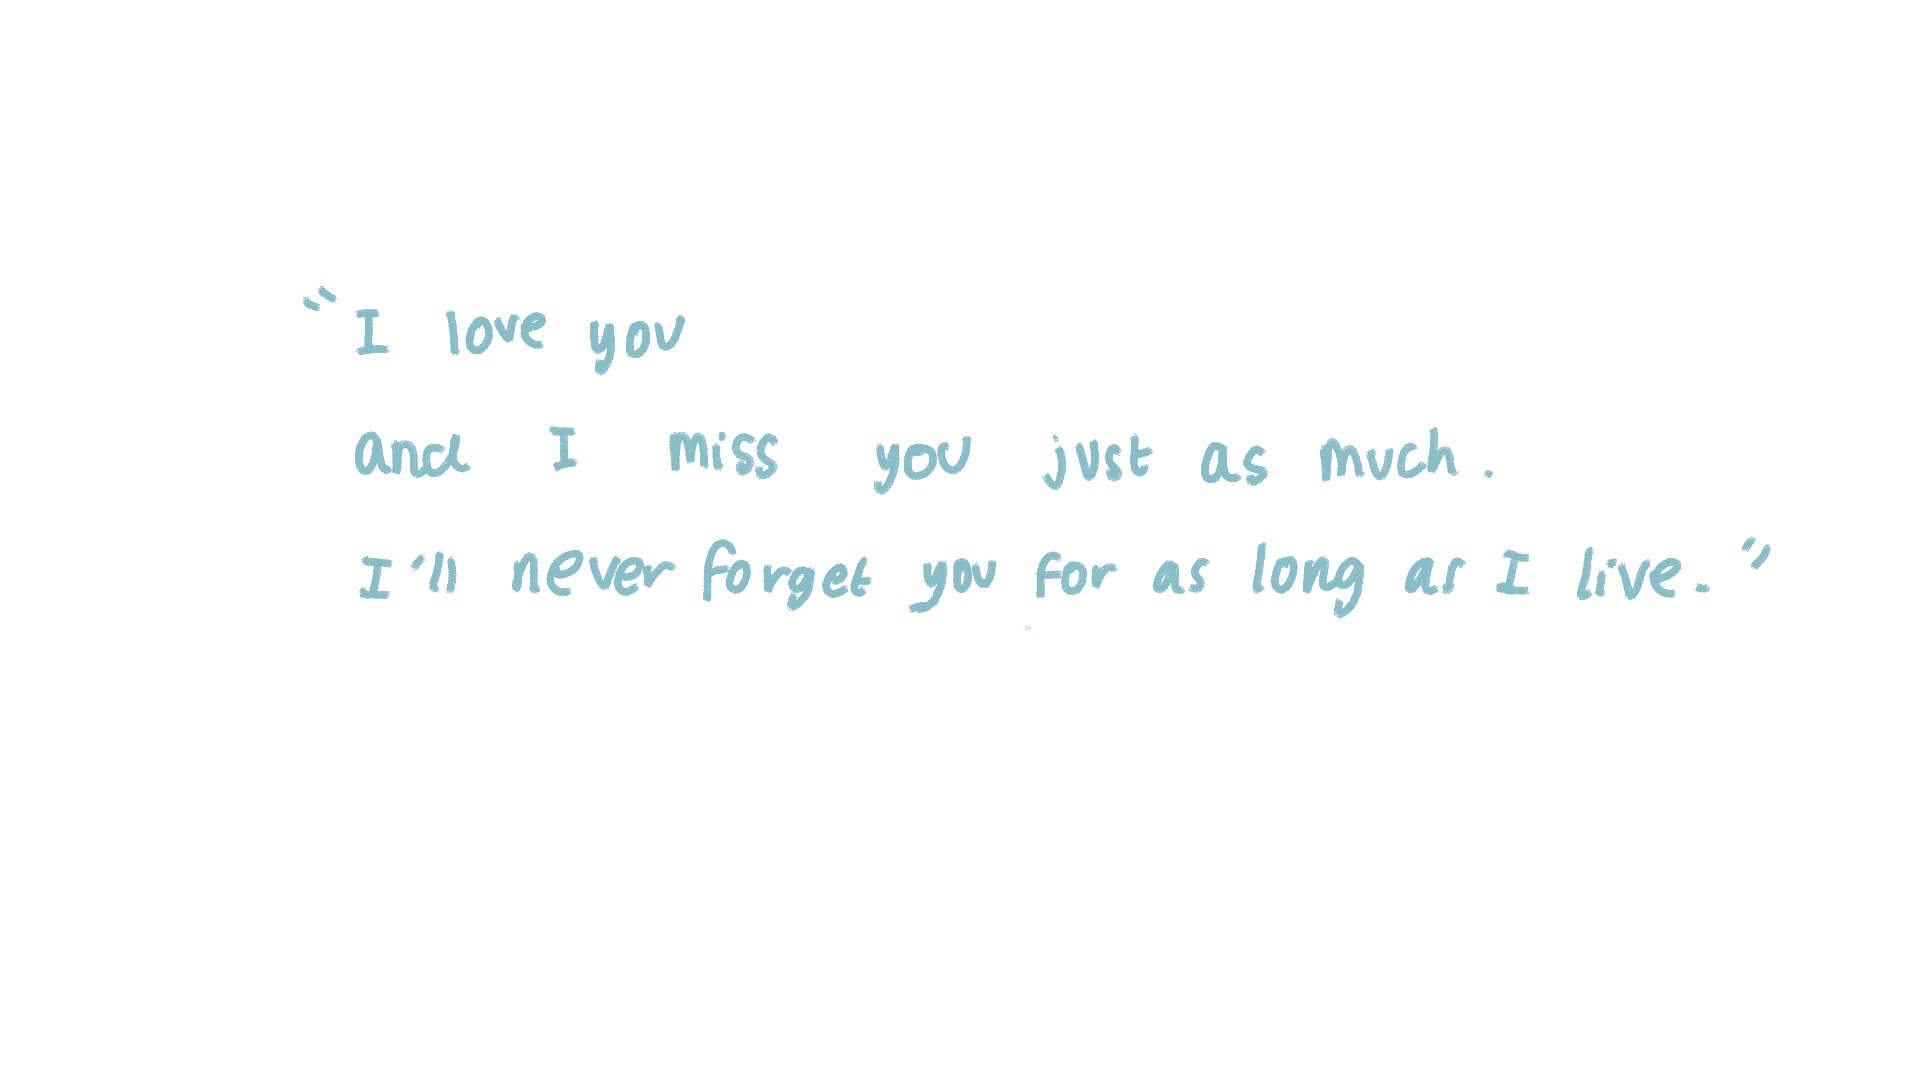 “I love you
and I miss you just as much.
I'll never forget you for as long as I live.”